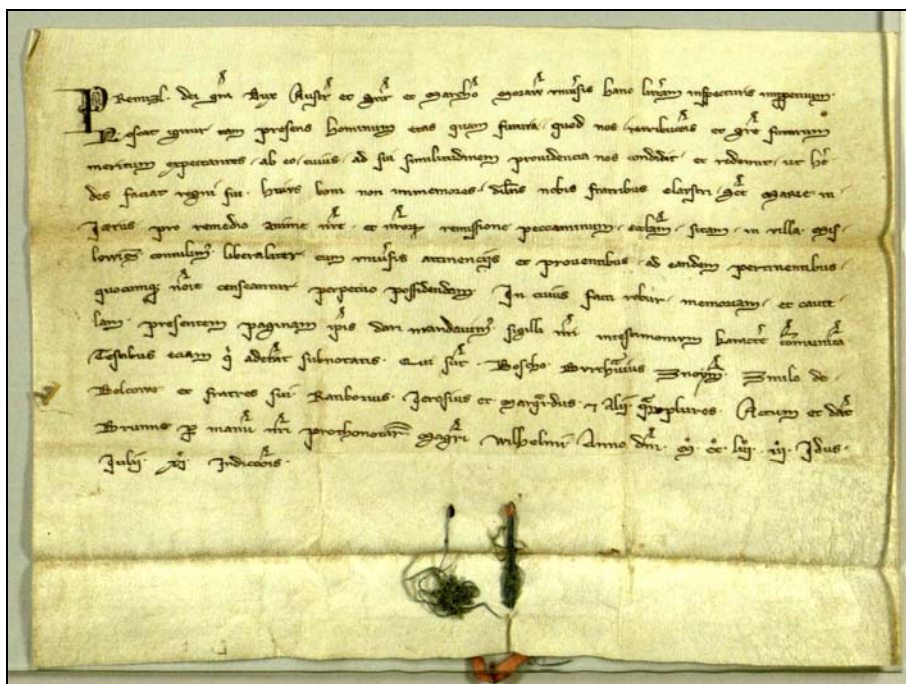 Premizl. dei gra Dux Austr et Stir et Marcho Morav univsis hanc litam inspecturis inppetuum.
Noscat igitur tam presens hominum etas quam futura. quod nos retributois et gre future
meritum expectantes. ab eo. cuius. ad sui similitudinem providencia nos condidit. et redemit. ut he
des faciat regni sui. huius boni non immemores. dilcis nobis fratribus claustri. Sce Marie in
pro remedio anime nre. et nror remissione peccaminum. ecclam. sitam. in villa. Mis
contulim. liberaliter. cum univsis attinenciis et proventibus. ad eandem pertinentibus.
quocumq noie censeantur perpetuo possidendam. In cuius facti robur. memoriam. et caute
lam. presentem paginam ipis dari mandavim. sigilli nri karactre comunita
Testibus eciam q aderat subnotatis. Qui sut. Boscho. Smilo de.
et fratres sui. Ratiborius. Jerosius et Marqrdus. 7 alii qplures. Actum et dat
Brunne p manu nri prothonotar Magri Wilhelmi. Anno dni. M. CC. Liii. iii. Idus.
Julii. XI. Indictois.